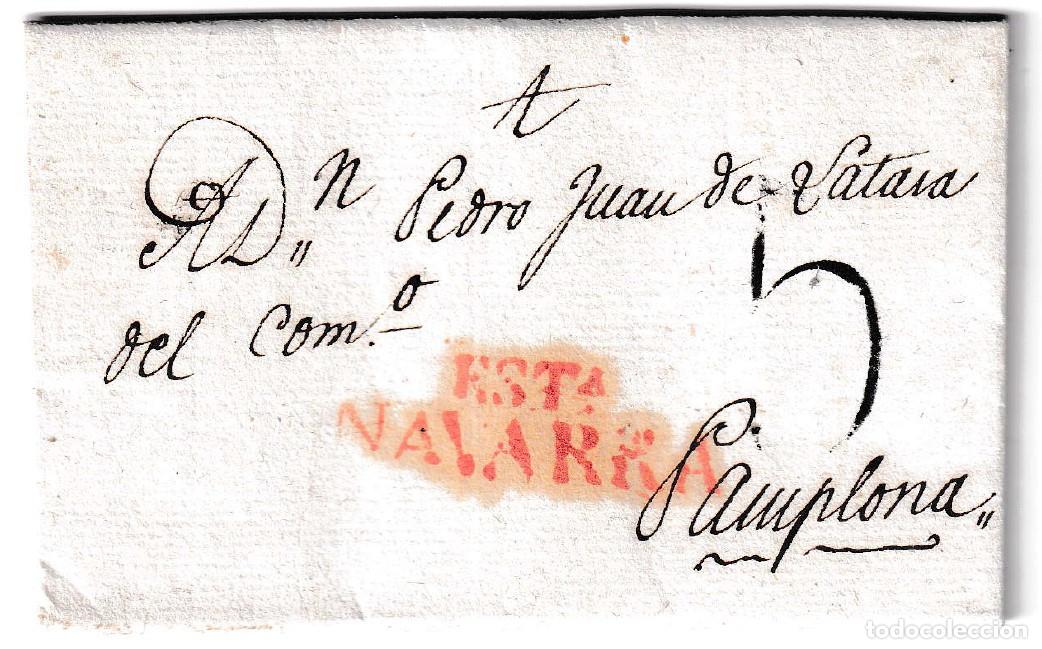 A Dn Pedro Juan de Vataia
del Como
ESTA
NAVARRA
5
Pamplona
todocoleccion